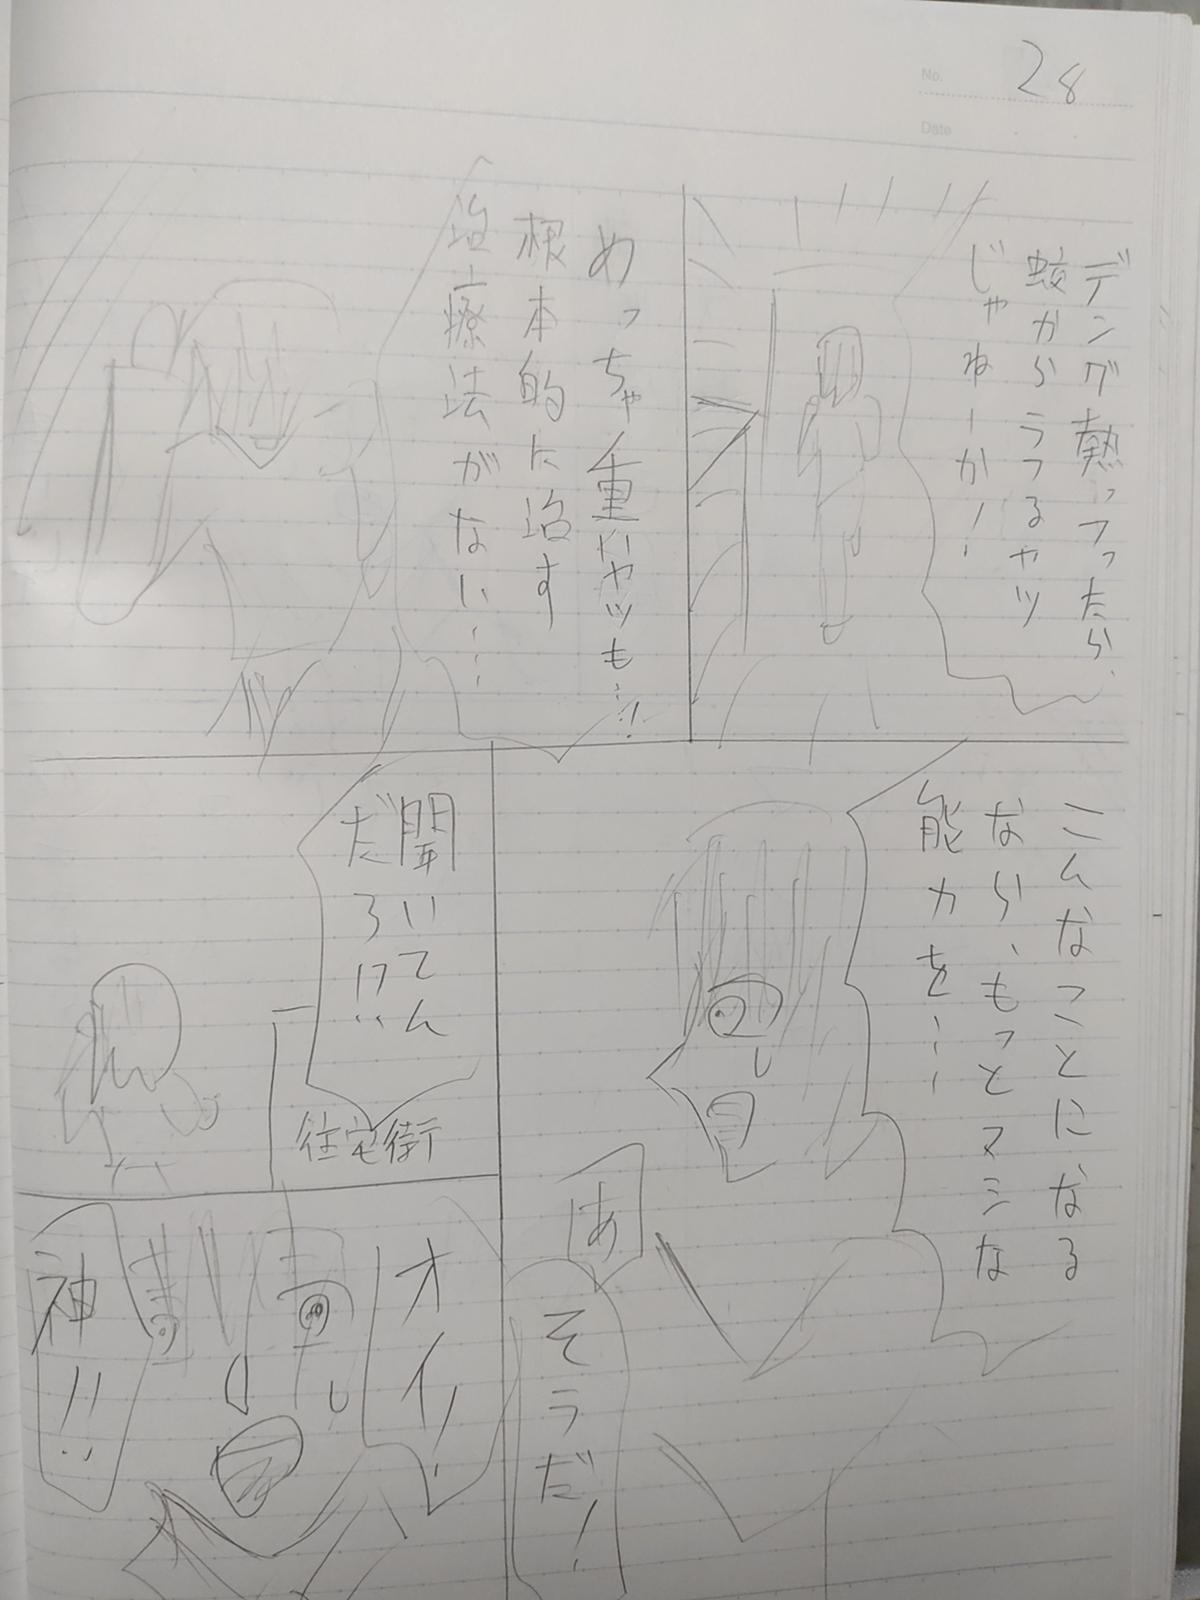 No.
28
Date
デング熱っつったら、
蚊からうつるヤツ
じゃねーか!
めっちゃ重いヤツも…!
根本的に治す
治療法がない……
こんなことになる
なら、もっとマシな
能力を……
あ
そうだ!
聞いてん
だろ!!
住宅街
オイ!
神!!